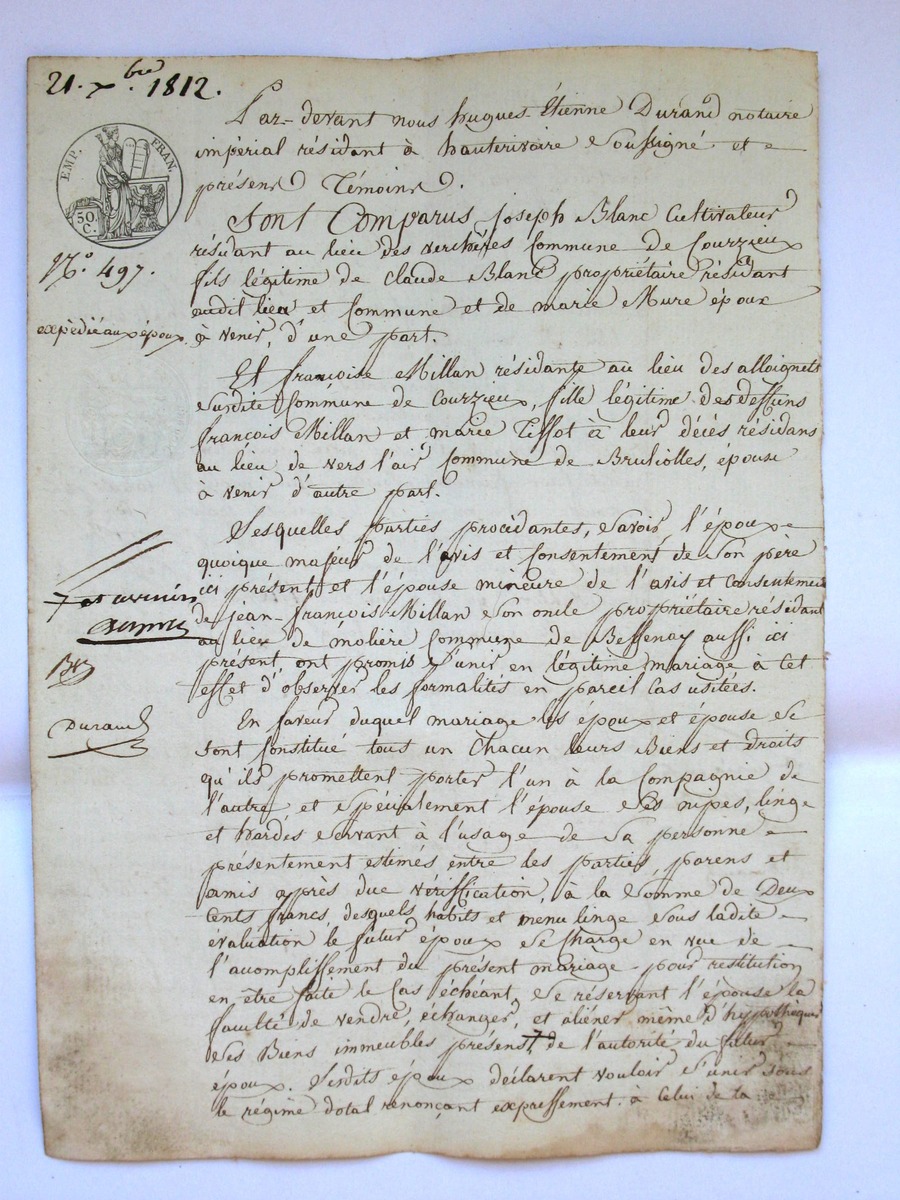 21. xbre 1812.
EMP. FRAN.
50. C.
N.° 497.
expédié aux époux.
Par-devant nous hugues-Étienne Durand notaire
impérial résidant à hauterivoire Soussigné et
présens Témoins.
Sont Comparus Joseph Blanc Cultivateur
résidant au lieu des verchères Commune de Courzieu
fils légitime de Claude Blanc propriétaire résidant
audit lieu et Commune et de marie Mure époux
à venir, d'une part.
Et françoise Millan résidante au lieu des alloignets
Surdite Commune de Courzieux, fille légitime des deffuns
françois Millan et marie Tissot à leur décès résidans
au lieu de vers l'air Commune de Bruliolles, épouse
à venir d'autre part.
Lesquelles parties procédantes, Savoir, l'époux
quoique majeur de l'avis et Consentement de Son père
ici présent, et l'épouse mineure de l'avis et Consentement
de jean-françois Millan Son oncle propriétaire résidant
au lieu de molière Commune de Bessenay aussi ici
présent, ont promis S'unir en légitime mariage à Cet
effet d'observer les formalités en pareil Cas usitées.
En faveur duquel mariage les époux et épouse Se
Sont Constitué tous un Chacun leurs Biens et droits
qu'ils promettent porter l'un à la Compagnie de
l'autre et Spécialement l'épouse Ses nipes, linge
et hardes Servant à l'usage de Sa personne
présentement estimés entre les parties, parens et
amis après due vériffication, à la Somme de Deux
Cents francs, desquels habits et menu linge Sous ladite
évaluation le futur époux Se Charge en vue de
l'acomplissement du présent mariage pour restitution
en être faite le Cas échéant, Se réservant l'épouse la
faculté de vendre, échanger, et aliéner même d'hypothéquer
Ses Biens immeubles présens de l'autorité du futur
époux. Lesdits époux déclarent vouloir S'unir Sous
le régime dotal renonçant expressement à Celui de la
et avenir
Durand